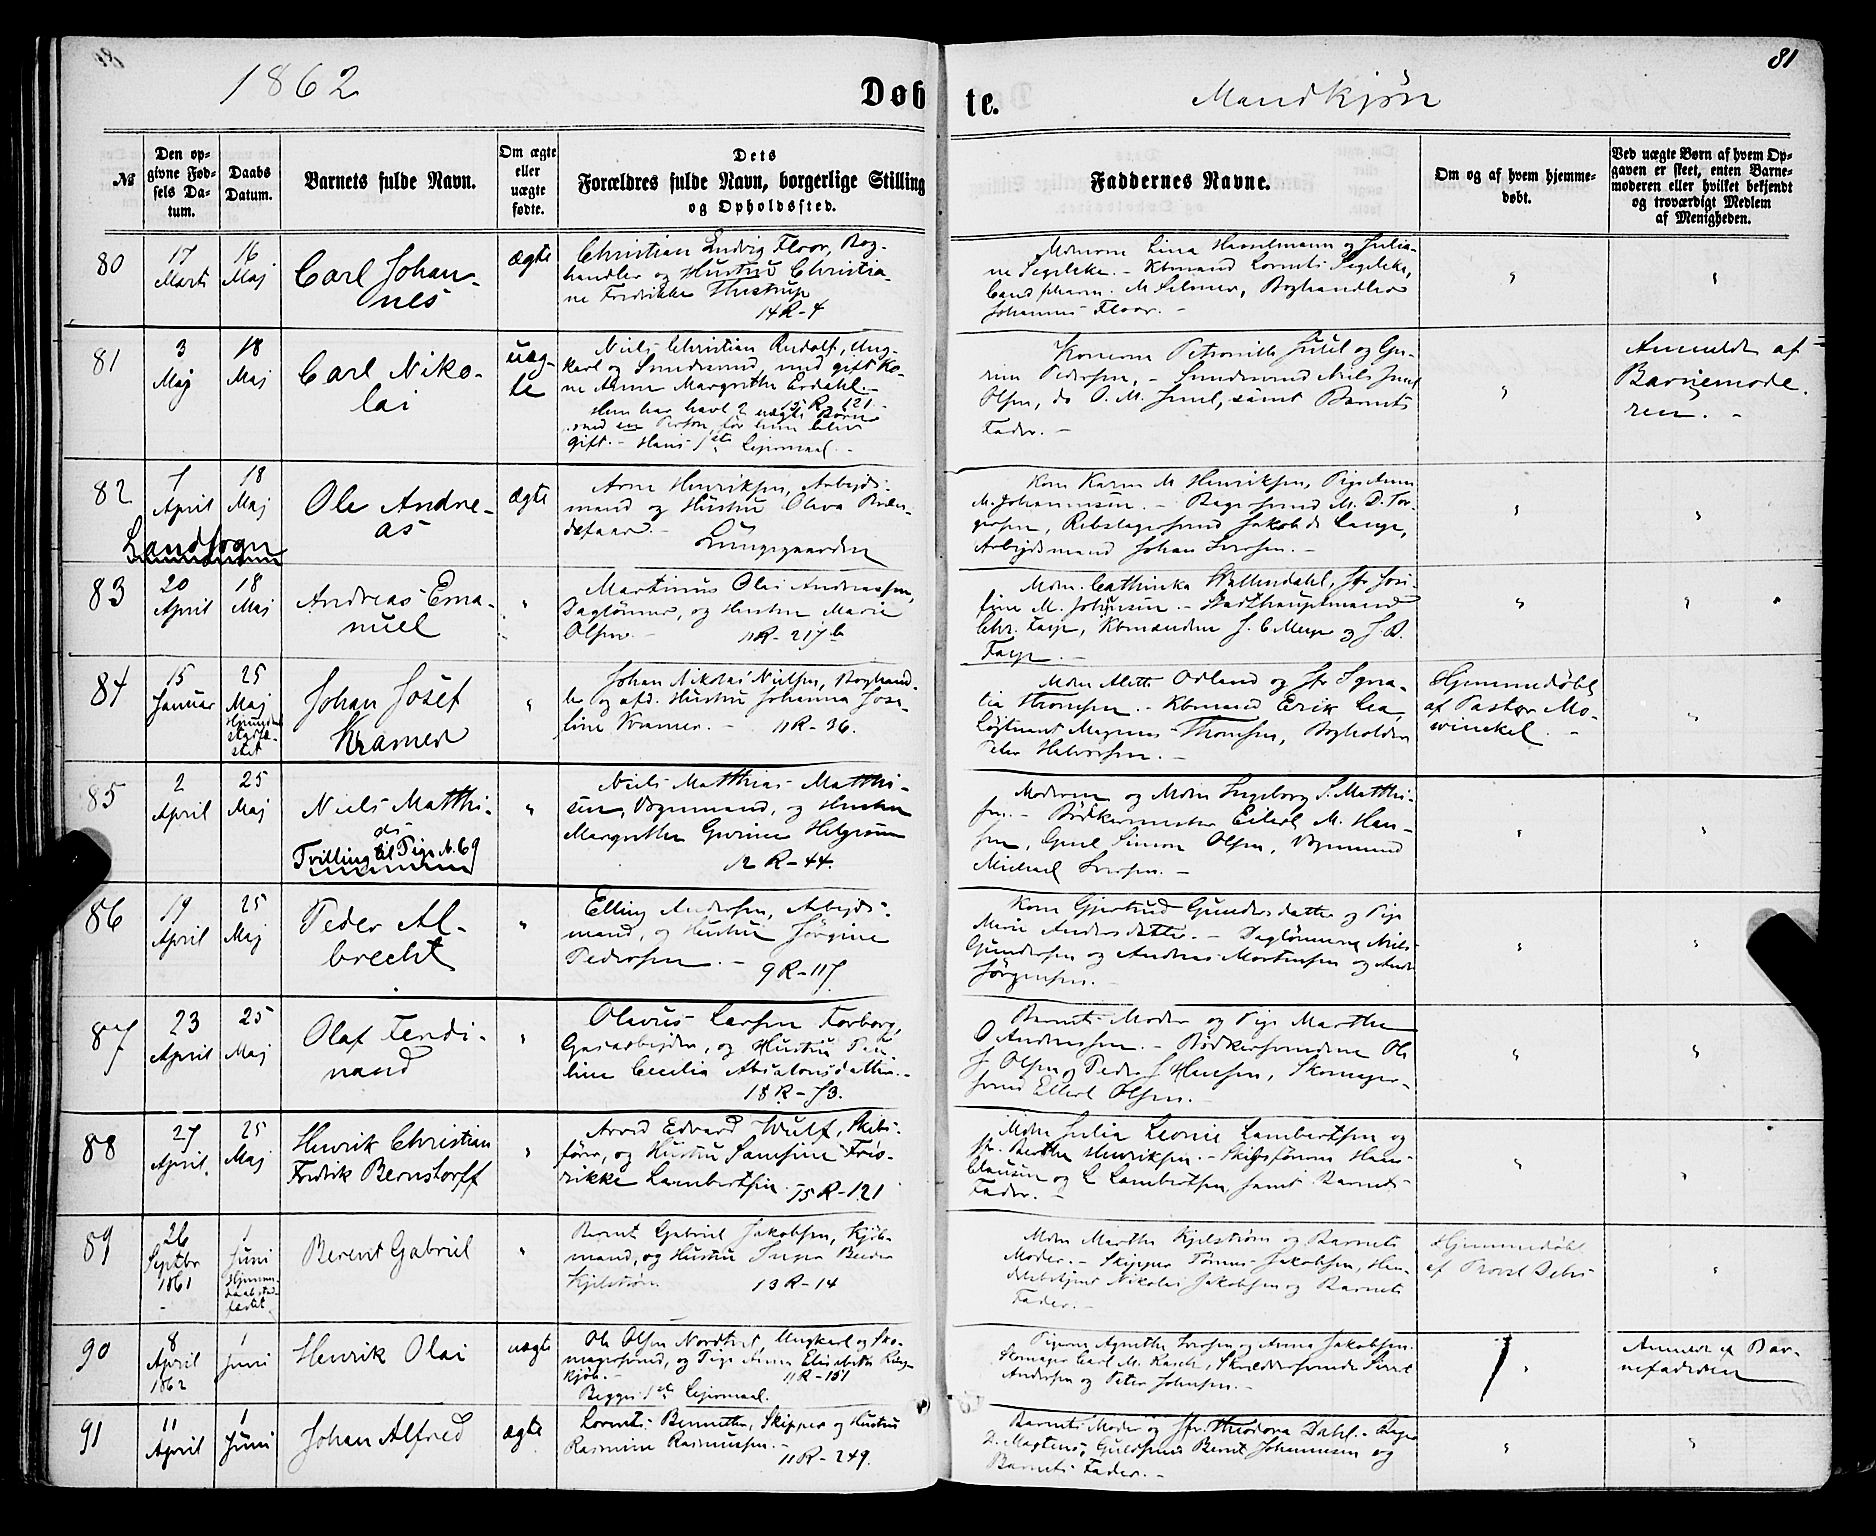 81
1862
Døbte.
Mandkjøn
№
Den op-
givne Fød-
sels Da-
tum.
Daabs
Datum.
Barnets fulde Navn.
Om ægte
eller
uægte
fødte.
Dets
Forældres fulde Navn, borgerlige Stilling
og Opholdssted.
Faddernes Navne.
Om og af hvem hjemme-
døbt.
Ved uægte Børn af hvem Op-
gaven er skeet, enten Barne-
moderen eller hvilket bekjendt
og troværdigt Medlem
af Menigheden.
80
17
Marts
16
Maj
Carl Johan-
nes
ægte
Christian Ludvig Floor, Bog-
handler og Hustru Christia-
ne Fredrikke Thestrup
14 R - 4
Madmerne Lina Hasselmann og Julia-
ne Segelcke. - Kbmand Lorentz Segelcke,
Cand pharm. M Selmer, Boghandler
Johannes Floor. -
81
3
Maj
18
Maj
Carl Niko-
lai
uæg-
te
Niels Christian Rudolf, Ung-
karl og Smedsvend, med gift Ko-
ne Anne Margrethe Erdahl. -
15 R - 121
Hun har havt 2 uægte Børn
med en Person, før hun blev
gift. - Hans 1ste Lejermaal. -
Konerne Petronille Juul og Gu-
rine Pedersen, - Smedsvend Niels Juul
Olsen, do O. M. Juul, samt Barnets
Fader. -
Anmeldt af
Barnemode-
ren. -
82
7
April
18
Maj
Ole Andre-
as
ægte
Landsogn
Arne Henriksen, Arbejds-
mand og Hustru Oliva
Lungegaarden
Kone Karen M Henriksen, Pige Anne
M. Johannessen. - Bagersvend M. D. Tor-
gersen, Rebslagersvend Jakob d. Lange,
Arbejdsmand Johan Iversen. -
83
20
April
18
Maj
Andreas Ema-
nuel
Martinus Olai Andreassen,
Daglønner, og Hustru Marie
Olsen. - 11 R - 217 b
Mdm. Cathinka Stallendahl, Jfr Jose-
fine M. Johnsen. - Stadthauptmand
Chr. Faye, Kbmændene J. C Meyer og J. D.
Faye. -
84
15
Januar
25
Maj
Hjemmedaab
stadfæ-
stet
Johan Josef
Kramer
Johan Nikolai Nielsen, Boghand-
ler og afd. Hustru Johanna Jose-
fine Kramer. - 11 R - 36.
Mdm Alette Odland og Jfr Igna-
tia Thomsen. - Kbmand Erik Lea,
Løjtnant Magnus Thomsen, Bogholder
Peter Halvorsen. -
Hjemmedøbt
af Pastor Mo-
winckel. -
85
2
April
25
Maj
Niels Matthi-
as
Tvilling til Pige N. 69
Niels Matthias Matthi-
sen, Vognmand, og Hustru
Margrethe Gurine Helgesen
12 R - 44.
Moderen og Mdm Ingeborg S. Matthi-
sen. - Bødkermester Eilert M. Han-
sen, Simon Olsen, Vognmand
Michael Iversen. -
86
19
April
25
Maj
Peder Al-
brecht
Elling Andersen, Arbejds-
mand, og Hustru Jørgine
Pedersen. - 9 R - 117
Kone Gjertrud Gundersdatter og Pige
Marie Andersdatter. - Daglønnerne Niels
Gundersen og Andreas Mortensen og Anders
Jørgensen. -
87
23
April
25
Maj
Olaf Ferdi-
nand
Olavus Larsen Forborg,
Gasarbejder, og Hustru Pau-
line Cecilia Absalonsdatter. -
18 R - 73.
Barnets Moder og Pige Marthe
O Andreassen. - Bødkersvendene Ole
J. Olsen og Peder J Hansen, Skomager-
svend Ellert Olsen. -
88
27
April.
25
Maj
Henrik Christian
Fredrik Bernstorff
Arved Edvard Wulf, Skibs-
fører, og Hustru Samsine Fre-
rikke Lambertsen. 15 R - 121
Mdm Julia Leonie Lambertsen og
Jfr. Berthe Henriksen. - Skibsførerne Hans
Clausen og L Lambertsen, samt Barnets
Fader. -
89
26
Septbr
1861
1
Juni
Hjemme-
daab stad-
fæstet
Berent Gabriel
Bernt Gabriel Jakobsen, Kjøb-
mand, og Hustru Inger
Kjelstrøm 13 R - 14
Mdm Marthe Kjelstrøm og Barnets
Moder. - Skipper Tønnes Jakobsen, Han-
delsbetjent Nikolai Jakobsen og Barnets
Fader. -
Hjemmedøbt
af Provst
90
8
April
1862
1
Juni
Henrik Olai
uægte
Ole Olsen Nordtvet, Ungkarl og Sko-
magersvend, og Pige Anne Elisabeth
11 R - 151
Begges 1ste Lejermaal.
Pigerne Agnethe Iversen og Anna Jakobsen.
Skomager Carl M. Rasch, Skræddersvendene Sivert
Andersen og Peter Johnsen. -
Anmeldt af Bar-
nefaderen
91
11
April
1
Juni
Johan Alfred
ægte
Lorents Bennetter, Skipper og Hustru
Rasmine Rasmussen. -
11 R - 249.
Barnets Moder og Jfr. Theodora Dahl. - Bager
D. Martens, Guldsmed Bernt Johannesen og
Barnets Fader. -